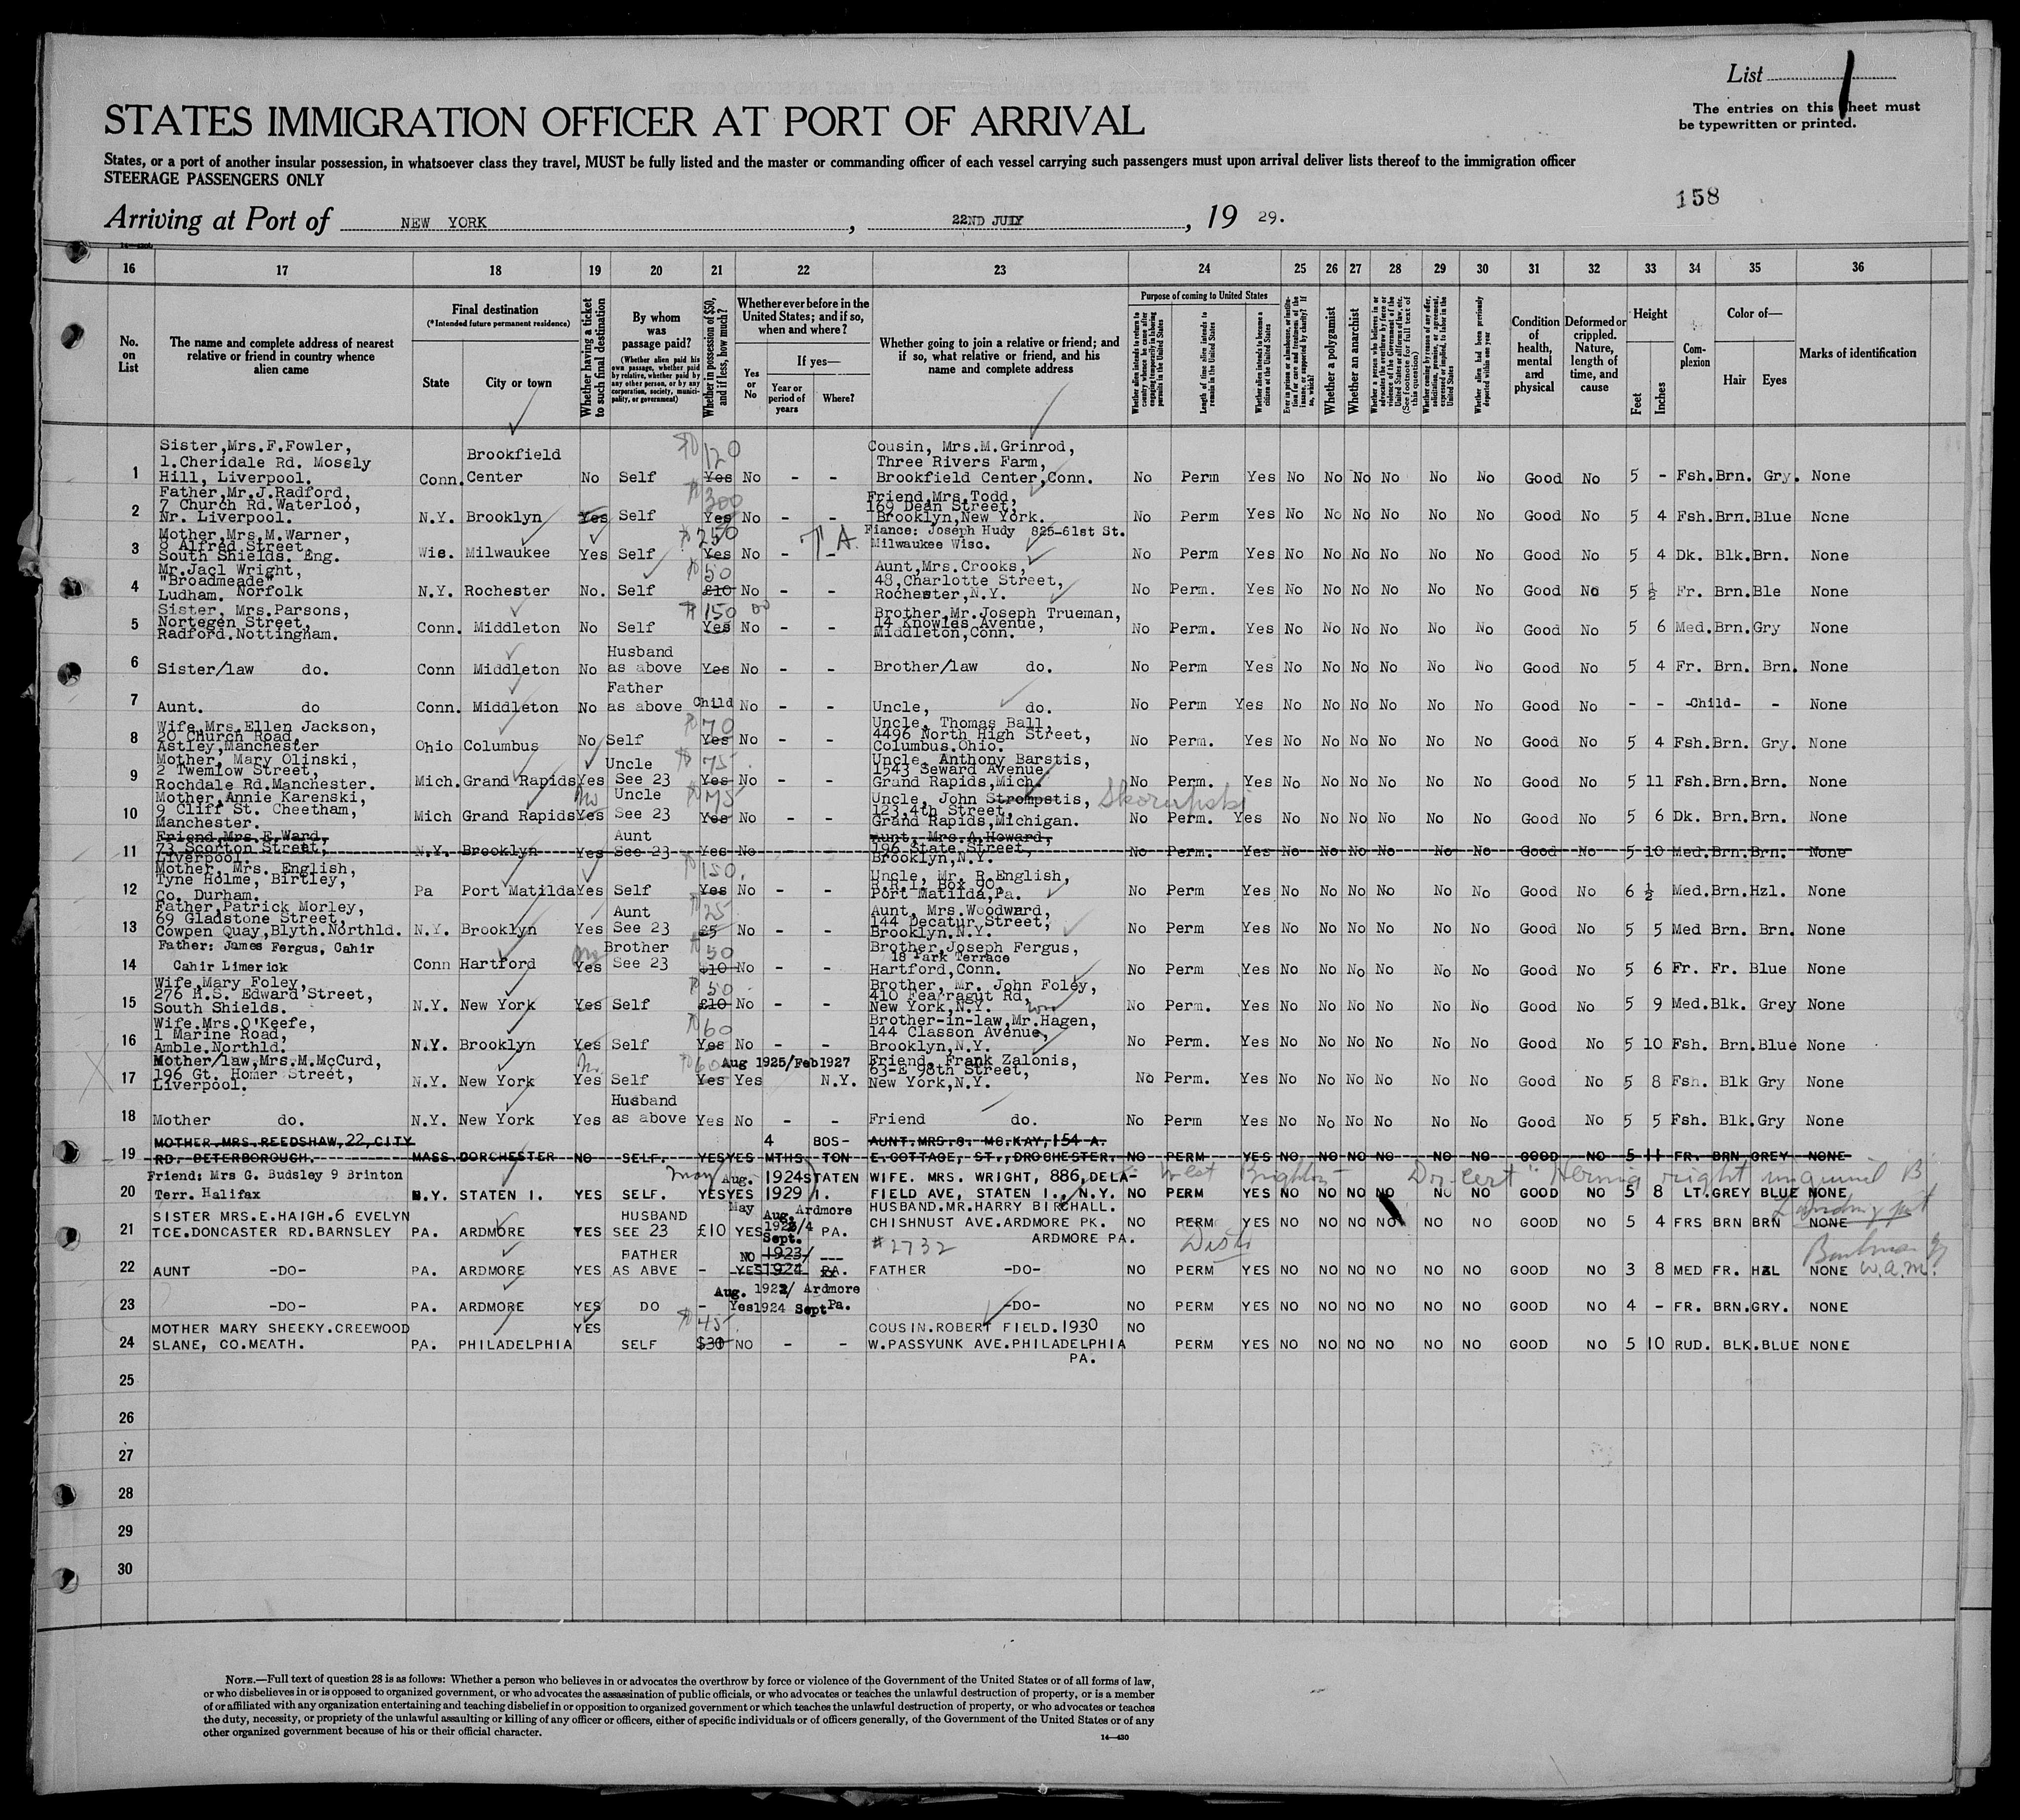 List 1
The entries on this sheet must
be typewritten or printed.
STATES IMMIGRATION OFFICER AT PORT OF ARRIVAL
States, or a port of another insular possession, in whatsoever class they travel, MUST be fully listed and the master or commanding officer of each vessel carrying such passengers must upon arrival deliver lists thereof to the immigration officer
STEERAGE PASSENGERS ONLY
158
Arriving at Port of NEW YORK, 22ND JULY, 19 29.
16 17 18 19 20 21 22 23 24 25 26 27 28 29 30 31 32 33 34 35 36
No. on List
The name and complete address of nearest relative or friend in country whence alien came
Final destination
(*Intended future permanent residence)
State
City or town
Whether having a ticket to such final destination
By whom was passage paid?
(Whether alien paid his own passage, whether paid by relative, whether paid by any other person, or by any corporation, society, municipality, or government)
Whether in possession of $50, and if less, how much?
Whether ever before in the United States; and if so, when and where?
Yes or No
If yes—
Year or period of years
Where?
Whether going to join a relative or friend; and if so, what relative or friend, and his name and complete address
Purpose of coming to United States
Whether alien intends to return to country whence he came after engaging temporarily in laboring pursuits in the United States
Length of time alien intends to remain in the United States
Whether alien intends to become a citizen of the United States
Whether a polygamist
Whether an anarchist
Whether alien had been previously deported within one year
Condition of health, mental and physical
Deformed or crippled. Nature, length of time, and cause
Height
Feet
Inches
Complexion
Color of—
Hair
Eyes
Marks of identification
Sister,Mrs.F.Fowler,
1.Cheridale Rd. Mossly
Hill, Liverpool.
1 Conn. Brookfield Center No Self $120 Yes No - - Cousin, Mrs.M.Grinrod,
Three Rivers Farm,
Brookfield Center,Conn. No Perm Yes No No No No No No Good No 5 - Fsh. Brn. Gry. None
Father,Mr.J.Radford,
7 Church Rd.Waterloo,
Nr. Liverpool.
2 N.Y. Brooklyn Yes Self $300 Yes No - - Friend,Mrs,Todd,
169 Dean Street,
Brooklyn,New York. No Perm Yes No No No No No No Good No 5 4 Fsh.Brn.Blue None
Mother,Mrs.M.Warner,
8 Alfred Street,
South Shields. Eng.
3 Wis. Milwaukee Yes Self $250 Yes No - - Fiance: Joseph Hudy 825-61st St.
Milwaukee Wisc. No Perm Yes No No No No No No Good No 5 4 Dk. Blk.Brn. None
Mr.Jacl Wright,
"Broadmeade"
Ludham. Norfolk
4 N.Y. Rochester No. Self $50 £10 No - - Aunt,Mrs.Crooks,
48,Charlotte Street,
Rochester,N.Y. No Perm. Yes No No No No No No Good No 5 ½ Fr. Brn.Ble None
Sister, Mrs.Parsons,
Nortegen Street,
Radford.Nottingham.
5 Conn. Middleton No Self $150 00 Yes No - - Brother,Mr.Joseph Trueman,
14 Knowles Avenue,
Middleton,Conn. No Perm. Yes No No No No No No Good No 5 6 Med.Brn.Gry None
6 Sister/law do. Conn Middleton No Husband as above Yes No - - Brother/law do. No Perm Yes No No No No No No Good No 5 4 Fr. Brn. Brn. None
7 Aunt. do Conn. Middleton No Father as above Child No - - Uncle, do. No Perm Yes No No No No No No Good No - - -Child- - None
Wife,Mrs.Ellen Jackson,
20 Church Road,
Astley,Manchester
8 Ohio Columbus No Self $70 Yes No - - Uncle, Thomas Ball,
4496 North High Street,
Columbus.Ohio. No Perm. Yes No No No No No No Good No 5 4 Fsh.Brn. Gry. None
Mother, Mary Olinski,
2 Twemlow Street,
Rochdale Rd.Manchester.
9 Mich. Grand Rapids Yes Uncle See 23 $75 Yes No - - Uncle, Anthony Barstis,
1543 Seward Avenue,
Grand Rapids,Mich. No Perm. Yes No No No No No No Good No 5 11 Fsh.Brn.Brn. None
Mother,Annie Karenski,
9 Cliff St. Cheetham,
Manchester.
10 Mich Grand Rapids No Yes Uncle See 23 $75 Yes No - - Uncle, John Strompstis, Skorupski
123,4th Street,
Grand Rapids,Michigan. No Perm. Yes No No No No No No Good No 5 6 Dk. Brn.Brn. None
Friend,Mrs.E.Ward,
73 Scorton Street,
Liverpool.
11 N.Y. Brooklyn Yes Aunt See 23 Yes No Aunt, Mrs.A.Howard,
196 State Street,
Brooklyn,N.Y. No Perm. Yes No No No No No No Good No 5 10 Med.Brn.Brn. None
Mother, Mrs. English,
Tyne Holme, Birtley,
Co. Durham.
12 Pa Port Matilda Yes Self $150. Yes No - - Uncle, Mr. R.English,
R.R.1, Box 90,
Port Matilda,Pa. No Perm Yes No No No No No No Good No 6 ½ Med.Brn.Hzl. None
Father,Patrick Morley,
69 Gladstone Street,
Cowpen Quay,Blyth.Northld.
13 N.Y. Brooklyn Yes Aunt See 23 $25 £5 No - - Aunt, Mrs.Woodward,
144 Decatur Street,
Brooklyn.N.Y. No Perm Yes No No No No No No Good No 5 5 Med Brn. Brn. None
Father: James Fergus, Cahir
Cahir Limerick
14 Conn Hartford No Yes Brother See 23 $50 £10 No - - Brother,Joseph Fergus,
18 Park Terrace
Hartford,Conn. No Perm Yes No No No No No No Good No 5 6 Fr. Fr. Blue None
Wife,Mary Foley,
276 H.S. Edward Street,
South Shields.
15 N.Y. New York Yes Self $50 £10 No - - Brother, Mr. John Foley,
410 Fearragut Rd,
New York,N.Y. No Perm. Yes No No No No No No Good No 5 9 Med.Blk. Grey None
Wife.Mrs.O'Keefe,
1 Marine Road,
Amble.Northld.
16 N.Y. Brooklyn Yes Self $60 Yes No - - Brother-in-law,Mr.Hagen,
144 Classon Avenue,
Brooklyn,N.Y. No Perm. Yes No No No No No No Good No 5 10 Fsh. Brn.Blue None
Mother/law,Mrs.M.McCurd,
196 Gt. Homer Street,
Liverpool.
17 N.Y. New York No Yes Self $60 Yes Yes Aug 1925/Feb1927 N.Y. Friend, Frank Zalonis,
63-E 98th Street,
New York,N.Y. No Perm. Yes No No No No No No Good No 5 8 Fsh. Blk Gry None
18 Mother do. N.Y. New York Yes Husband as above Yes No - - Friend do. No Perm Yes No No No No No No Good No 5 5 Fsh. Blk.Gry None
MOTHER.MRS.REEDSHAW,22,CITY
RD. PETERBOROUGH.
19 MASS. DORCHESTER NO SELF. YES YES 4 MTHS. BOSTON AUNT.MRS.G. MC.KAY,154 A.
E.COTTAGE, ST.,DROCHESTER. NO PERM YES NO NO NO NO NO NO GOOD NO 5 11 FR. BRN GREY NONE
Friend: Mrs G. Budsley 9 Brinton
Terr. Halifax
20 N.Y. STATEN I. YES SELF. YES YES May Aug. 1924 1929 STATEN I. WIFE. MRS. WRIGHT, 886,DELA-
FIELD AVE, STATEN I., N.Y. West Brighton NO PERM YES NO NO NO NO NO NO GOOD NO 5 8 LT.GREY BLUE NONE
Dr. cert Hernia right inguinal B
SISTER MRS.E.HAIGH.6 EVELYN
TCE.DONCASTER RD.BARNSLEY
21 PA. ARDMORE YES HUSBAND SEE 23 £10 YES May Aug. Sept. Ardmore PA. HUSBAND.MR.HARRY BIRCHALL.
CHISHNUST AVE.ARDMORE PK.
ARDMORE PA. #2732 NO PERM YES NO NO NO NO NO NO GOOD NO 5 4 FRS BRN BRN NONE
22 AUNT -DO- PA. ARDMORE YES FATHER AS ABVE - NO YES 1923/ 1924 --- PA. FATHER -DO- NO PERM YES NO NO NO NO NO NO GOOD NO 3 8 MED FR. HZL NONE W.A.M.
23 -DO- PA. ARDMORE YES DO - Yes Aug. 1922/ 1924 Sept Ardmore Pa. -DO- NO PERM YES NO NO NO NO NO NO GOOD NO 4 - FR. BRN.GRY. NONE
MOTHER MARY SHEEKY.CREEWOOD
SLANE, CO.MEATH.
24 PA. PHILADELPHIA YES SELF $45 $30 NO - - COUSIN.ROBERT FIELD.1930
W.PASSYUNK AVE.PHILADELPHIA
PA. NO PERM YES NO NO NO NO NO NO GOOD NO 5 10 RUD. BLK.BLUE NONE
25
26
27
28
29
30
NOTE.—Full text of question 28 is as follows: Whether a person who believes in or advocates the overthrow by force or violence of the Government of the United States or of all forms of law,
or who disbelieves in or is opposed to organized government, or who advocates the assassination of public officials, or who advocates or teaches the unlawful destruction of property, or is a member
of or affiliated with any organization entertaining and teaching disbelief in or opposition to organized government or which teaches the unlawful destruction of property, or who advocates or teaches
the duty, necessity, or propriety of the unlawful assaulting or killing of any officer or officers, either of specific individuals or of officers generally, of the Government of the United States or of any
other organized government because of his or their official character.
14—430